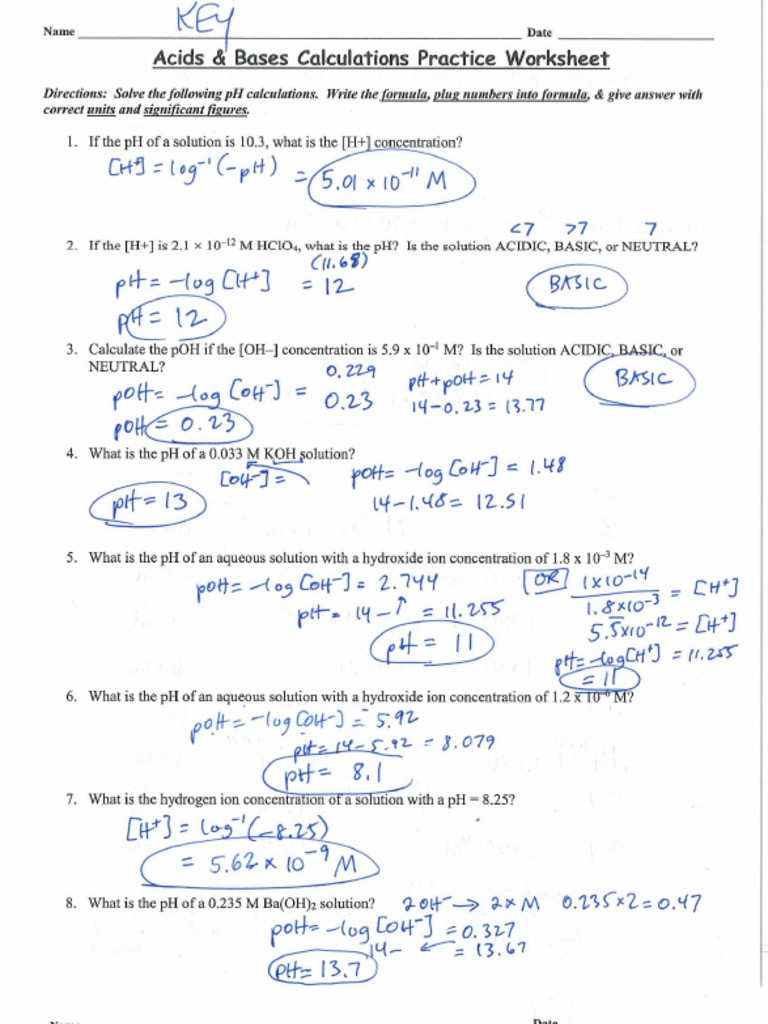 KEY
Name Date
Acids & Bases Calculations Practice Worksheet
Directions: Solve the following pH calculations. Write the formula, plug numbers into formula, & give answer with
correct units and significant figures.
1. If the pH of a solution is 10.3, what is the [H+] concentration?
[H+] = log⁻¹(-pH) = 5.01 x 10⁻¹¹ M
<7 >7 7
2. If the [H+] is 2.1 × 10⁻¹² M HClO₄, what is the pH? Is the solution ACIDIC, BASIC, or NEUTRAL?
(11.68)
pH = -log [H+] = 12 BASIC
pH = 12
3. Calculate the pOH if the [OH–] concentration is 5.9 x 10⁻¹ M? Is the solution ACIDIC, BASIC, or
NEUTRAL? 0.229 BASIC
pOH = -log [OH-] = 0.23 pH + pOH = 14
14-0.23 = 13.77
pOH = 0.23
4. What is the pH of a 0.033 M KOH solution?
[OH-] = pOH = -log [OH-] = 1.48
pH = 13 14-1.48 = 12.51
5. What is the pH of an aqueous solution with a hydroxide ion concentration of 1.8 x 10⁻³ M?
pOH = -log [OH-] = 2.744 [OR] 1x10⁻¹⁴
pH = 14 - ↑ = 11.255 1.8x10⁻³ = [H+]
5.5x10⁻¹² = [H+]
pH = 11 pH = -log[H+] = 11.255
= 11
6. What is the pH of an aqueous solution with a hydroxide ion concentration of 1.2 x 10⁻⁶ M?
pOH = -log [OH-] = 5.92
pH = 14-5.92 = 8.079
pH = 8.1
7. What is the hydrogen ion concentration of a solution with a pH = 8.25?
[H+] = log⁻¹(-8.25)
= 5.62 x 10⁻⁹ M
8. What is the pH of a 0.235 M Ba(OH)₂ solution? 2OH⁻ → 2xM 0.235x2=0.47
pOH = -log [OH-] = 0.327
14- ← = 13.67
pH = 13.7